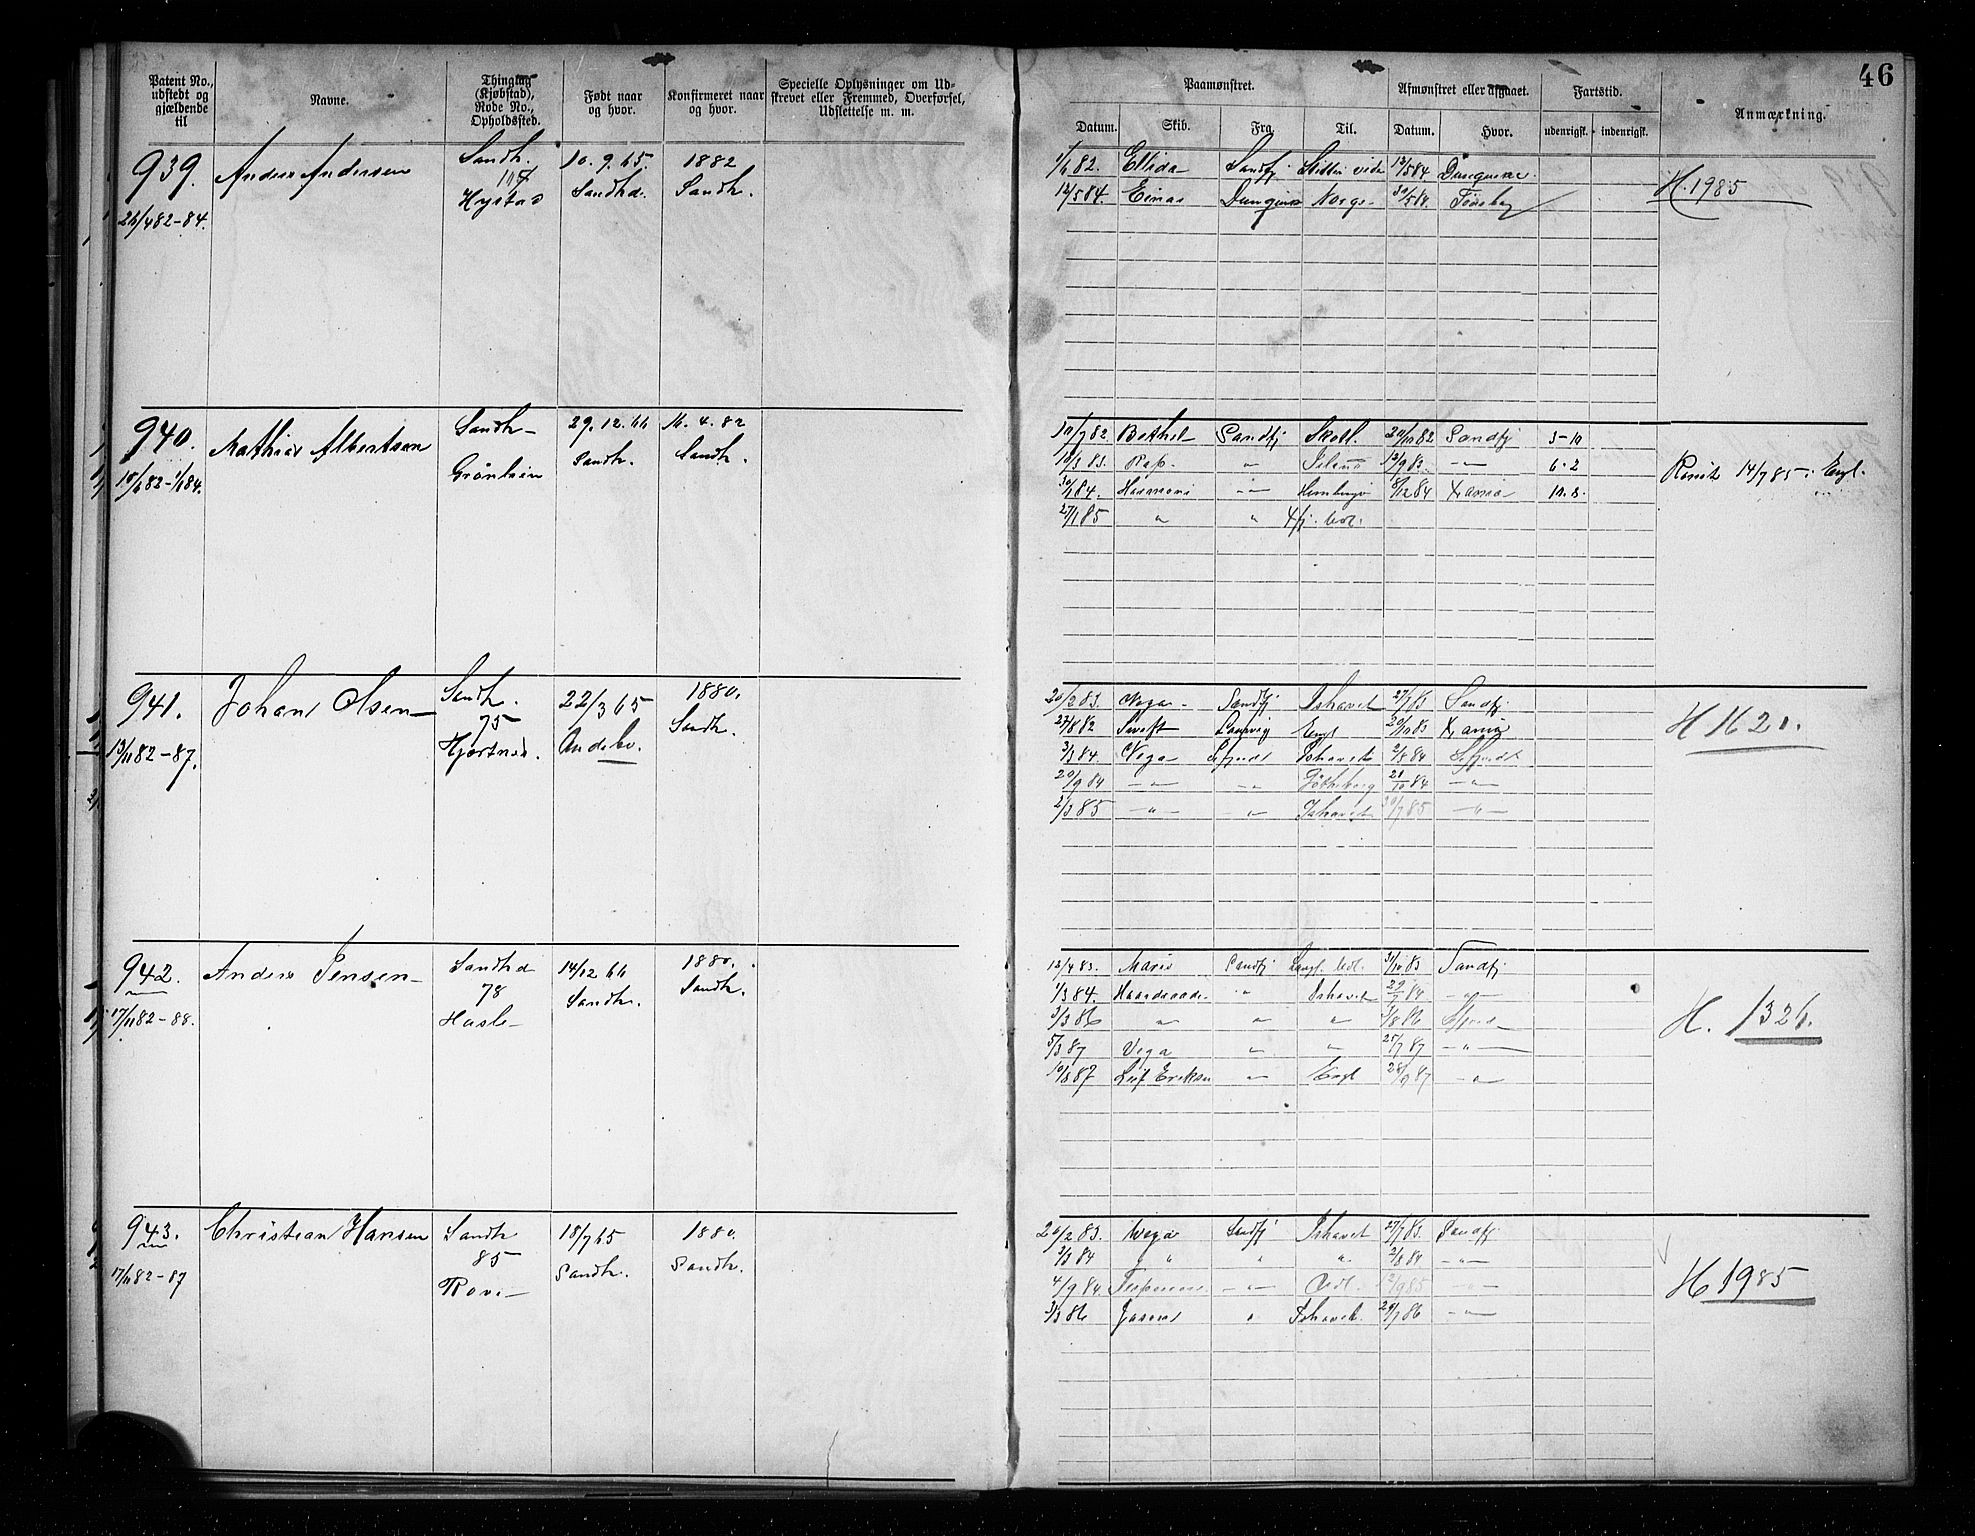 46
Patent No., udstedt og gjældende til
Navne.
Thinglag (Kjøbstad), Rode No., Opholdssted.
Født naar og hvor.
Konfirmeret naar og hvor.
Specielle Oplysninger om Udskrevet eller Fremmed, Overførsel, Udslettelse m. m.
Paamønstret.
Afmønstret eller afgaaet.
Fartstid.
Anmærkning.
Datum. Skib. Fra. Til. Datum. Hvor. udenrigsk. indenrigsk.
939. Anders Andersen Sandh. 104 Hystad 10.9.65. Sandhd. 1882 Sandh.
26/4 82-84.
1/6 82. Ellida Sandfj 12/5 84
12/5 84. Einar Norge 30/5 84. Tønsberg
H. 1985
940. Mathias Albertsen Sandh- Grønlien 29.12.66 Sandh. 16.4.82 Sandh.
82-1/1 84.
82. Bethel Sandfj Skotl. 82 Sandfj 3-10
83. Rap. " Island 12/9 83. -"- 6-2
30/1 84. Harmoni -"- 8/12 84 Xania 10.8.
27/1 85 " "
14/7 85. Engl.
941. Johan Olsen Sandh. 75 Hjertnes. 22/3 65 Andebu. 1880. Sandh.
13/11 82-87.
20/2 83. Vega Sandfj. Ishavet 27/7 83 Sandfj
27/8 83 Swift Laurvig Engl 20/10 83 Xania
3/3 84. Vega Ishavet 2/8 84
20/9 84 -"- -"- 21/10 84 -"-
2/3 85 -"- -"- Ishavet 30/7 85 -"-
H 1620.
942. Anders Jensen Sandhd 78 Hasle- 14/12 66 Sandh. 1880. Sandh.
17/11 82-88.
12/4 83. Marie Sandfj 31/10 83 Sandfj
1/3 84. Haardraade " Ishavet 29/7 84 -"-
3/3 86 " " " 3/8 86
5/3 87 Vega " " 25/7 87 -"-
10/8 87 Leif Eriksen " Engl 28/9 87 -"-
H. 1326.
943. Christian Hansen Sandh 85 Rove- 18/7 65 Sandh. 1880. Sandh.
17/11 82-87
20/2 83. Vega Sandfj Ishavet 27/7 83. Sandfj
3/3 84 " " " 2/8 84 -"-
4/9 84 -"- 2/9 85 -"-
3/3 86 Jason " Ishavet. 29/7 86 -"-
H 1985